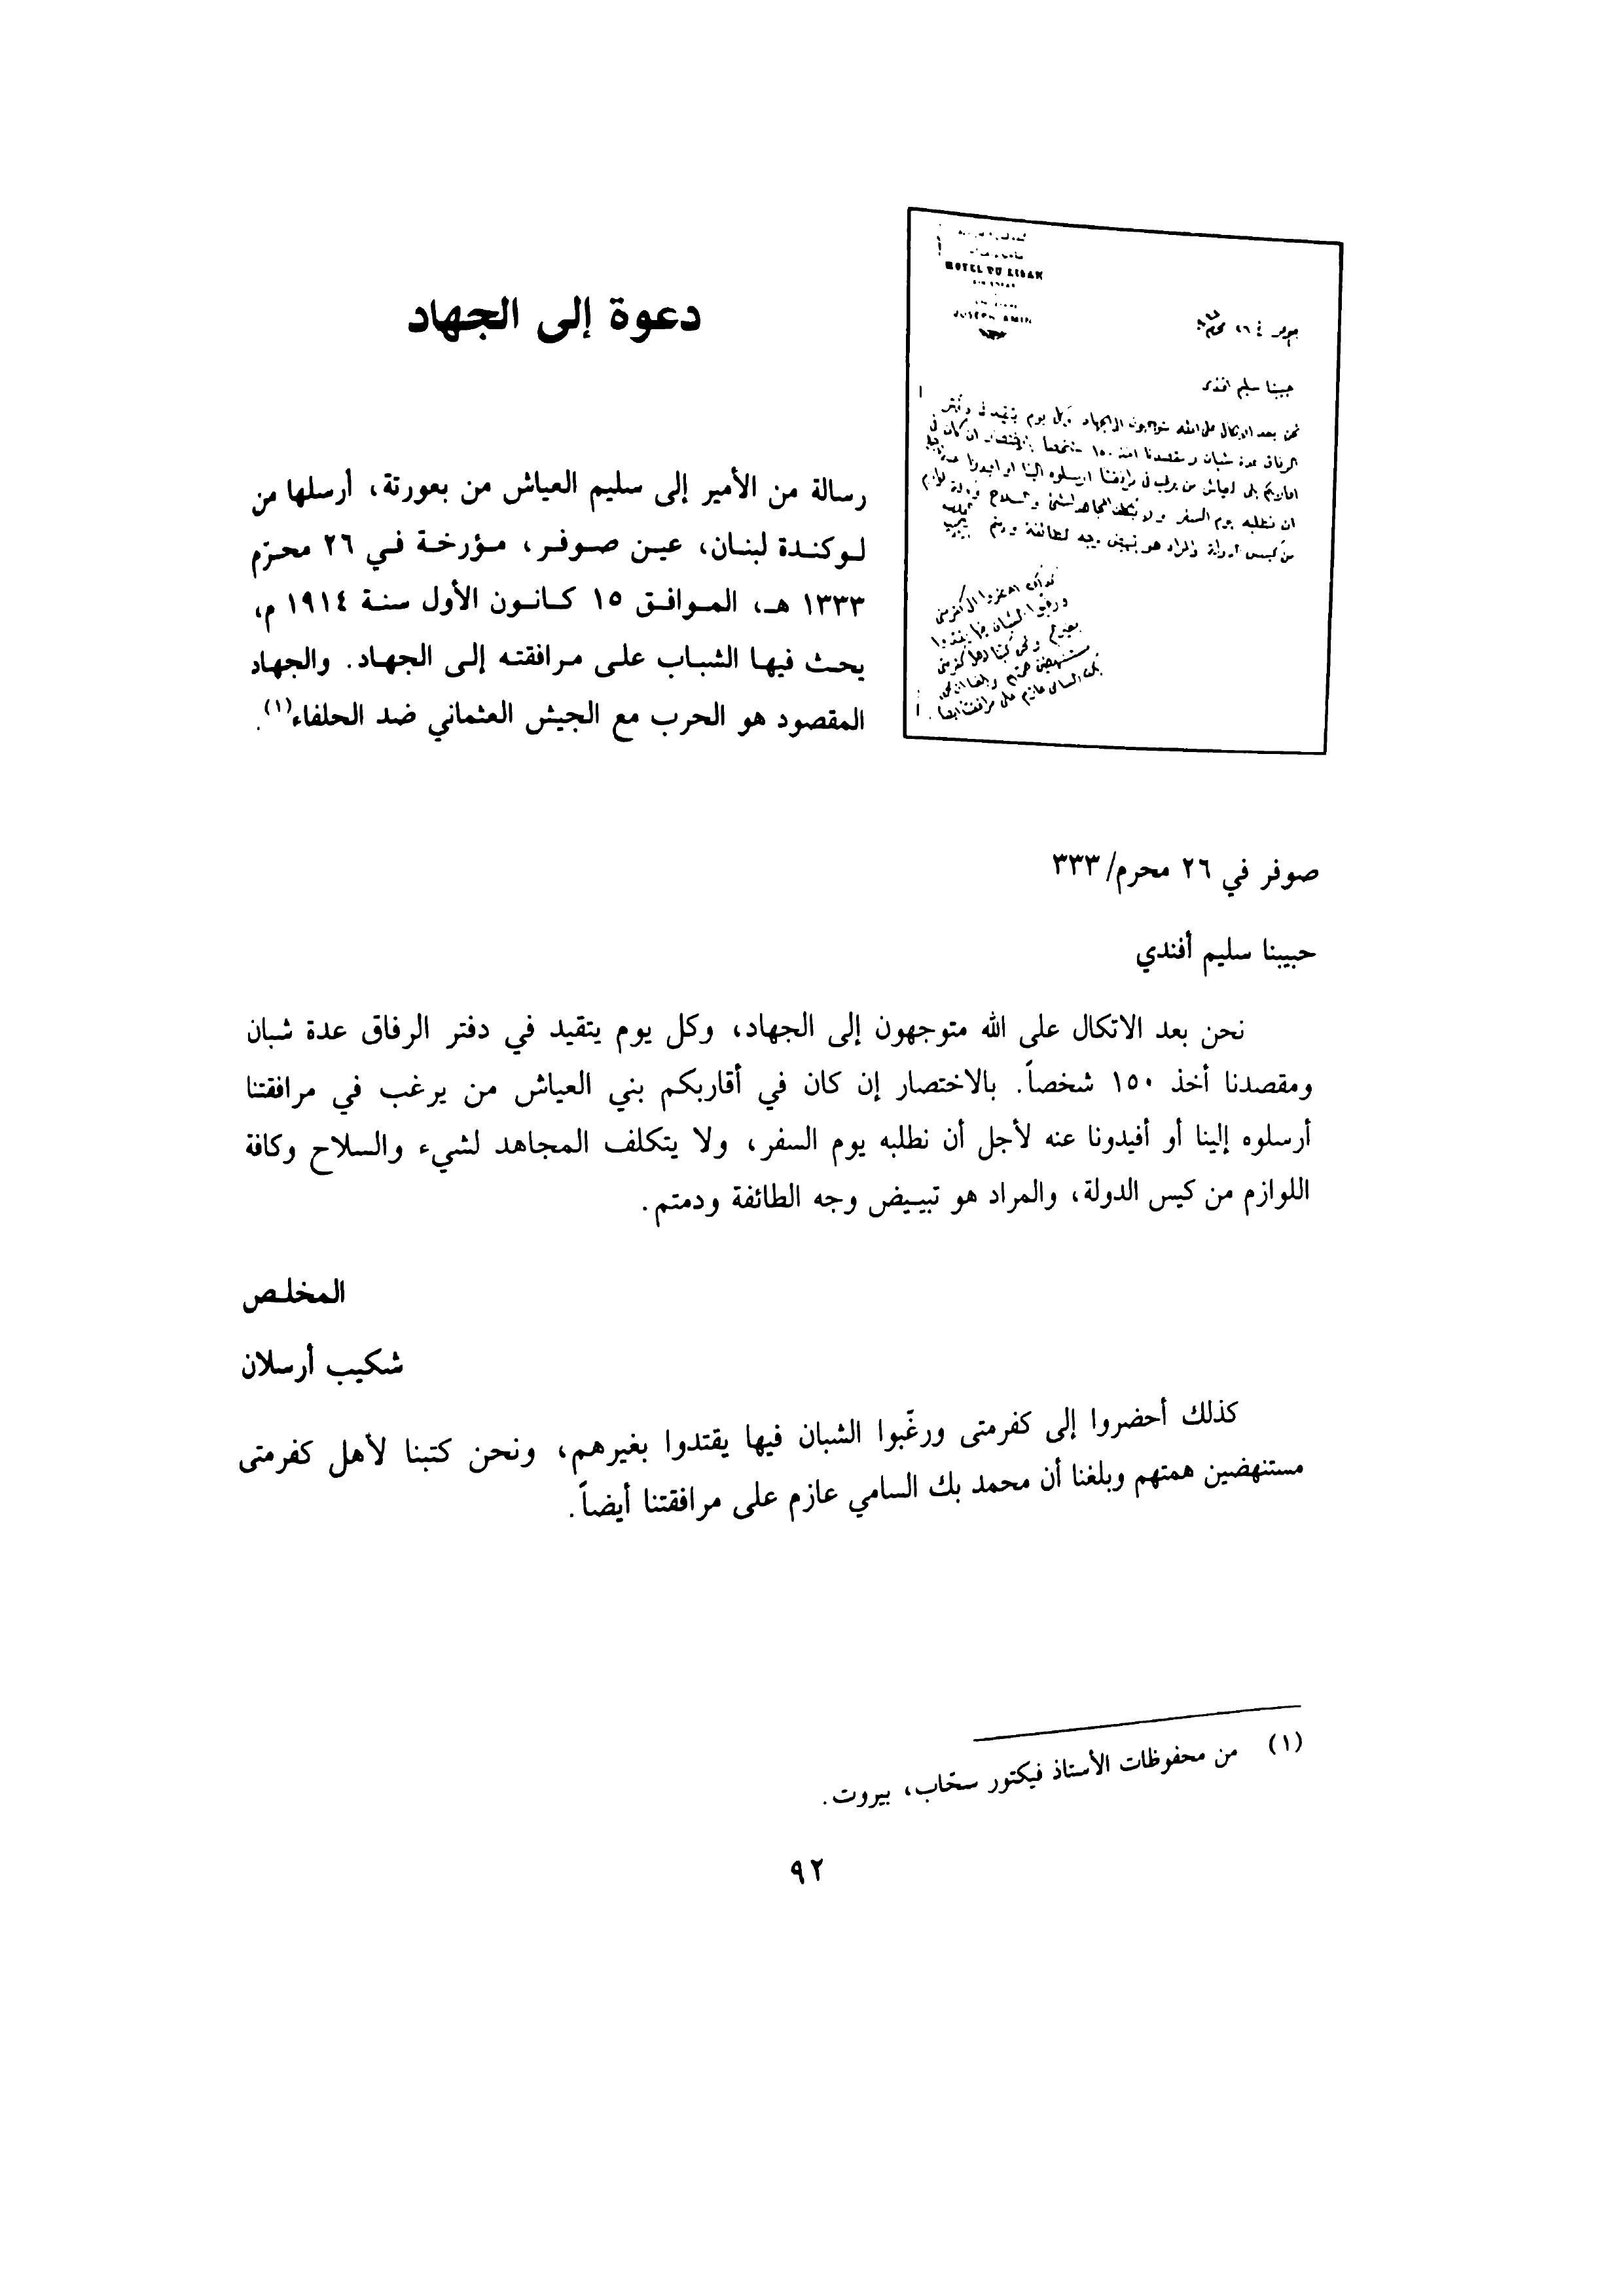 دعوة إلى الجهاد
رسالة من الأمير إلى سليم العياش من بعورتة، أرسلها من
لـوكـنـدة لبنـان، عيـن صـوفـر، مـؤرخـة فـي ٢٦ محـرّم
١٣٣٣ هـ، المـوافـق ١٥ كـانـون الأول سنـة ١٩١٤ م،
يحـث فيـهـا الشبـاب علـى مـرافقتـه إلـى الجهـاد. والجهاد
المقصود هو الحرب مع الجيش العثماني ضد الحلفاء(١).
HOTEL DU LIBAN
JOSEPH AMIN
حبيبنا سليم افندي
صوفر في ٢٦ محرم/٣٣٣
حبيبنا سليم أفندي
نحن بعد الاتكال على الله متوجهون إلى الجهاد، وكل يوم يتقيد في دفتر الرفاق عدة شبان
ومقصدنا أخذ ١٥٠ شخصاً. بالاختصار إن كان في أقاربكم بني العياش من يرغب في مرافقتنا
أرسلوه إلينا أو أفيدونا عنه لأجل أن نطلبه يوم السفر، ولا يتكلف المجاهد لشيء والسلاح وكافة
اللوازم من كيس الدولة، والمراد هو تبيـيض وجه الطائفة ودمتم.
المخلـص
شكيب أرسلان
كذلك أحضروا إلى كفرمتى ورغّبوا الشبان فيها يقتدوا بغيرهم، ونحن كتبنا لأهل كفرمتى
مستنهضين همتهم وبلغنا أن محمد بك السامي عازم على مرافقتنا أيضاً.
(١) من محفوظات الأستاذ فيكتور سحّاب، بيروت.
٩٢